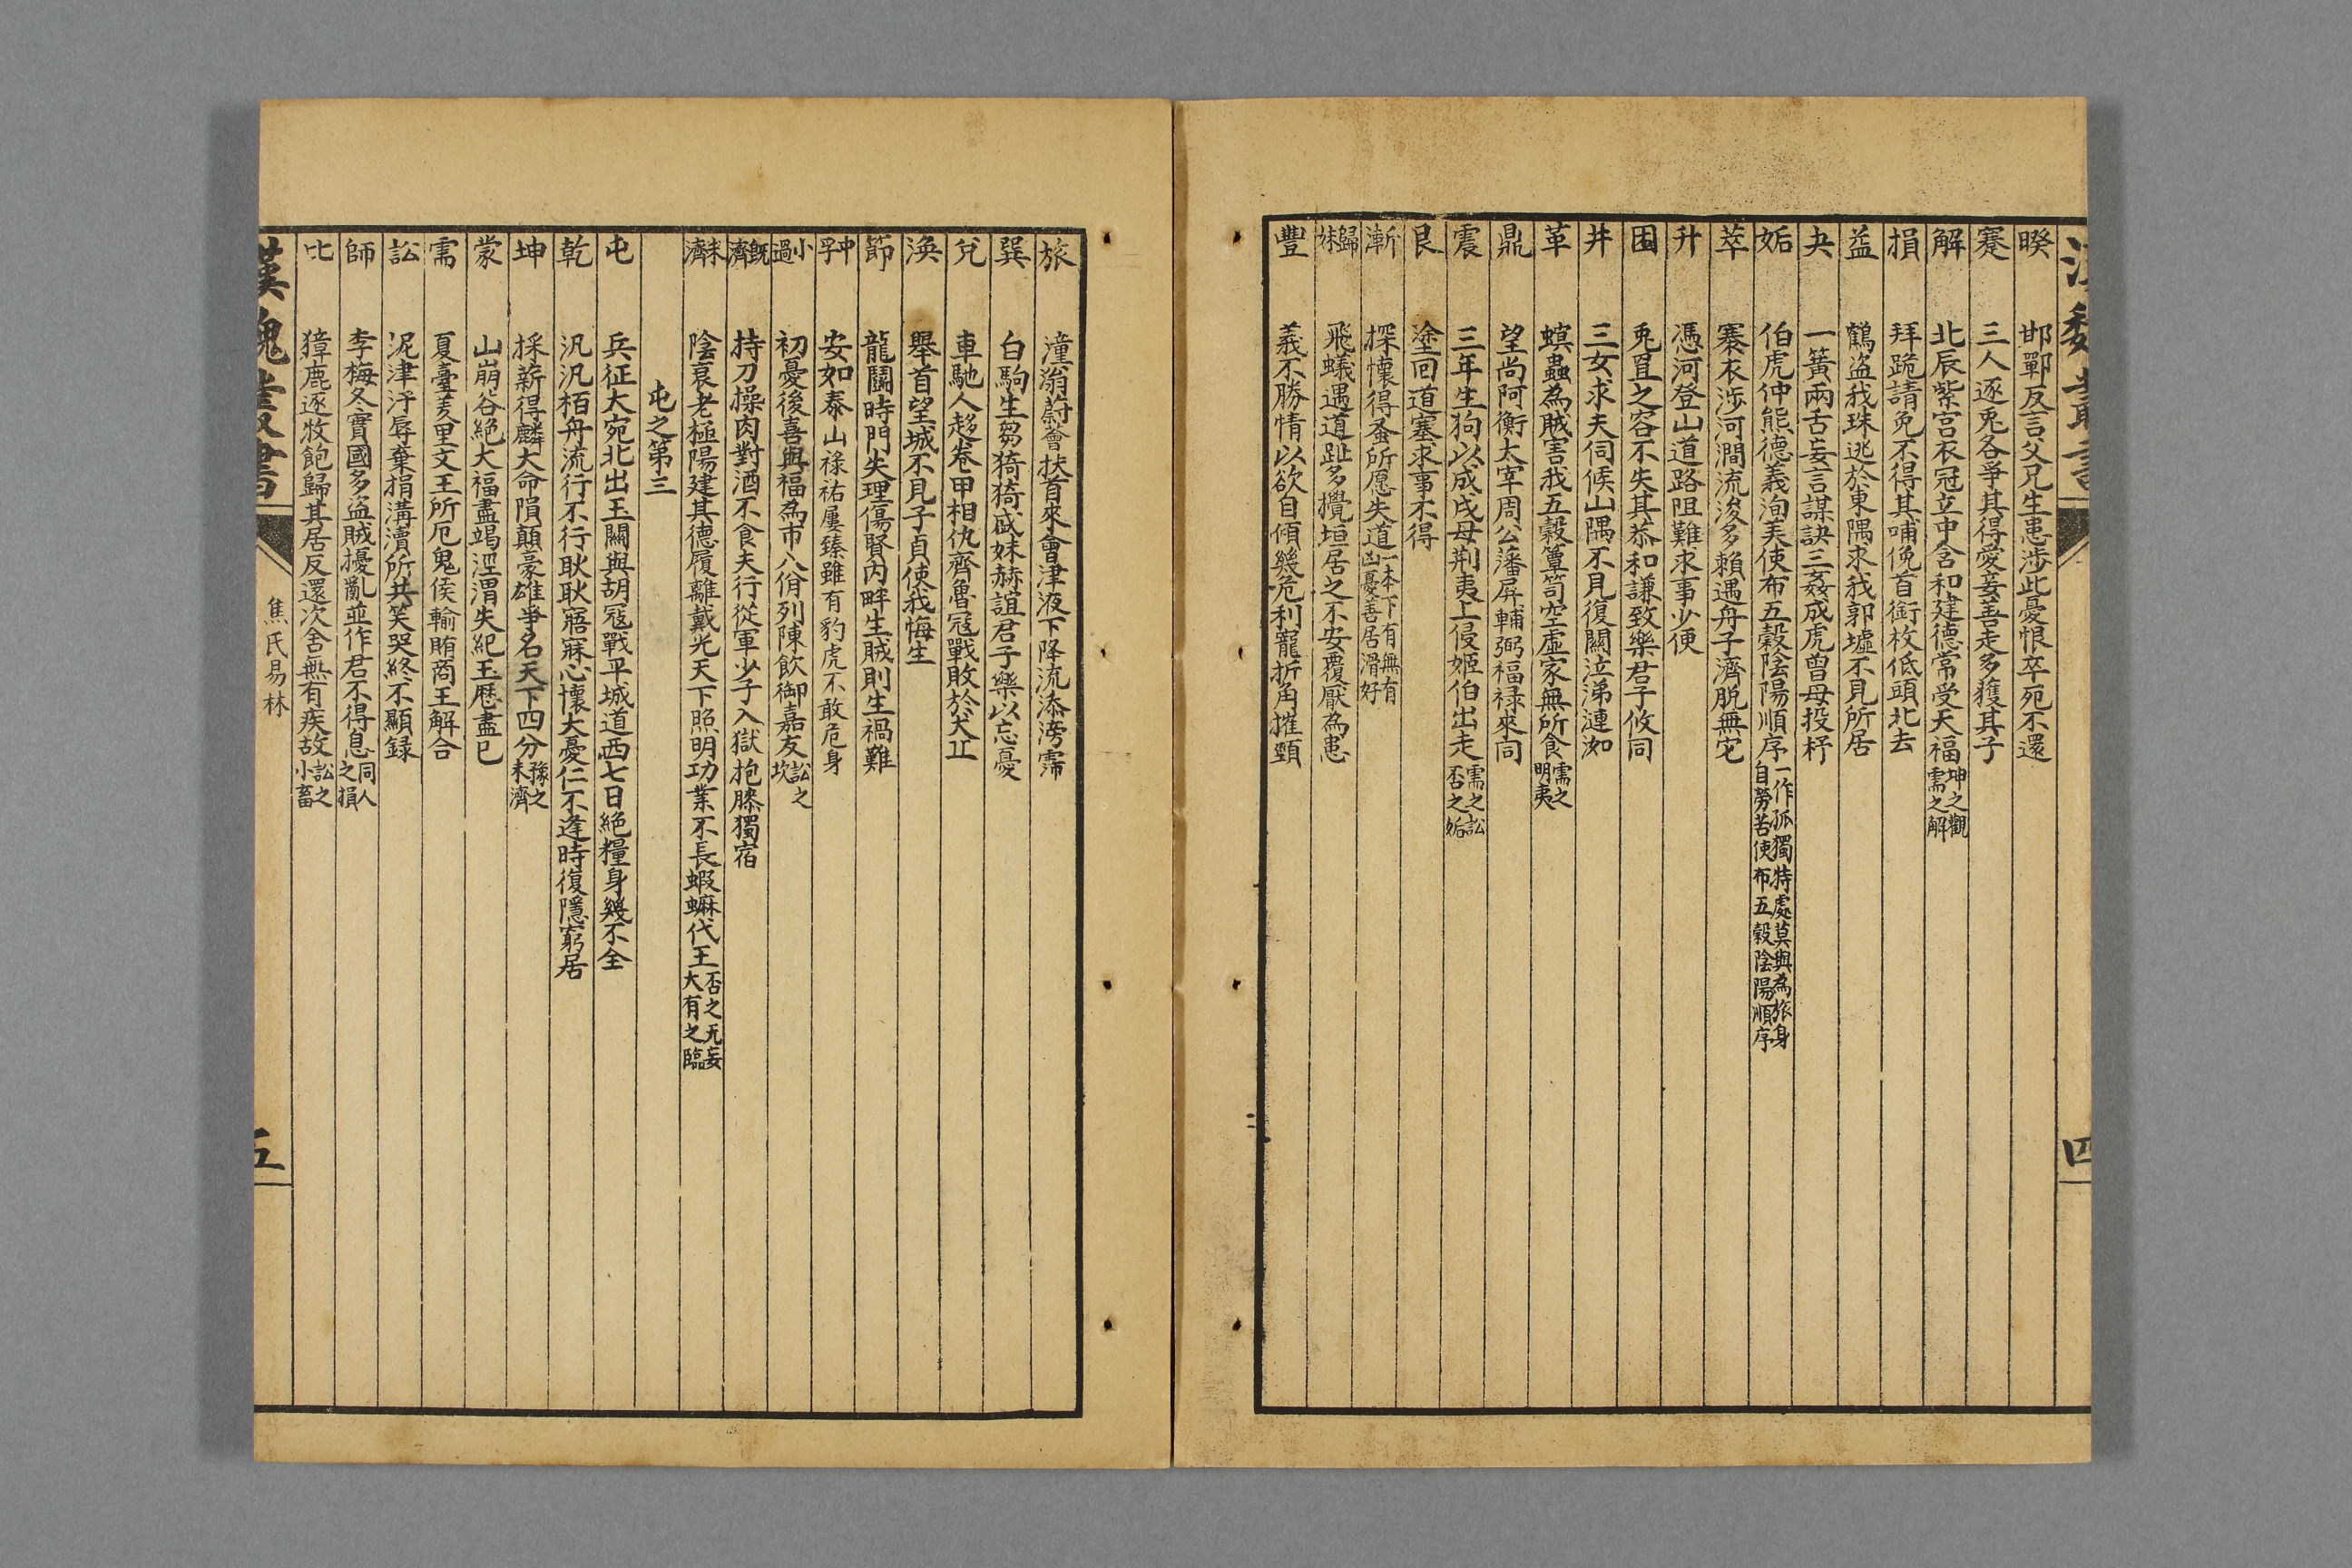 漢魏叢書
四
睽 邯鄲反言父兄生患涉此憂恨卒宛不還
蹇 三人逐兎各爭其得愛妾善走多獲其子
解 北辰紫宫衣冠立中含和建德常受天福坤之觀需之解
損 拜跪請免不得其哺俛首銜枚低頭北去
益 鶴盜我珠逃於東隅求我郭墟不見所居
夬 一簧兩舌妄言謀訣三姦成虎曾母投杼
姤 伯虎仲熊德義洵美使布五穀陰陽順序一作孤獨特處莫與為旅身自勞苦使布五穀陰陽順序
萃 褰衣涉河澗流浚多賴遇舟子濟脱無它
升 馮河登山道路阻難求事少便
困 兎罝之容不失其恭和謙致樂君子攸同
井 三女求夫伺候山隅不見復關泣涕漣洳
革 螟蟲為賊害我五穀簞笥空虛家無所食需之明夷
鼎 望尚阿衡大宰周公藩屏輔弼福禄來同
震 三年生狗以成戍母荆夷上侵姬伯出走需之訟否之姤
艮 塗回道塞求事不得
漸 探懷得蚤所愿失道一本下有無有凶憂善居滑好
歸妹 飛蟻遇道趾多攪垣居之不安覆厭為患
豐 義不勝情以欲自傾幾危利寵折角摧頸
旅 潼滃蔚薈扶首來會津液下降流添滂霈
巽 白駒生芻猗猗戚妹赫諠君子樂以忘憂
兌 車馳人趍卷甲相仇齊魯寇戰敗於犬丘
渙 舉首望城不見子貞使我悔生
節 龍鬬時門失理傷賢内畔生賊則生禍難
中孚 安如泰山禄祐屢臻雖有豹虎不敢危身
小過 初憂後喜與福為市八佾列陳飲御嘉友訟之坎
既濟 持刀操肉對酒不食夫行從軍少子入獄抱膝獨宿
未濟 陰衰老極陽建其德履離戴光天下照明功業不長蝦蟆代王否之无妄大有之臨
屯之第三
屯 兵征大宛北出玉關與胡寇戰平城道西七日絶糧身幾不全
乾 汎汎栢舟流行不行耿耿寤寐心懷大憂仁不逢時復隱窮居
坤 採薪得麟大命隕顛豪雄爭名天下四分豫之未濟
蒙 山崩谷絶大福盡竭涇渭失紀玉厯盡已
需 夏臺羑里文王所厄鬼侯輸賄商王解合
訟 泥津汙辱棄捐溝瀆所共笑哭終不顯録
師 李梅冬實國多盜賊擾亂並作君不得息同人之損
比 獐鹿逐牧飽歸其居反還次舍無有疾故訟之小畜
漢魏叢書
焦氏易林
五